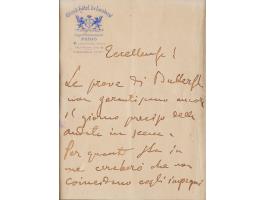 Eccellenza!
Le prove di Butterfly
non garantiscono ancora
il giorno preciso della
andata in scena.
Per quanto sta in
me cercherò che non
coincidano cogli impegni